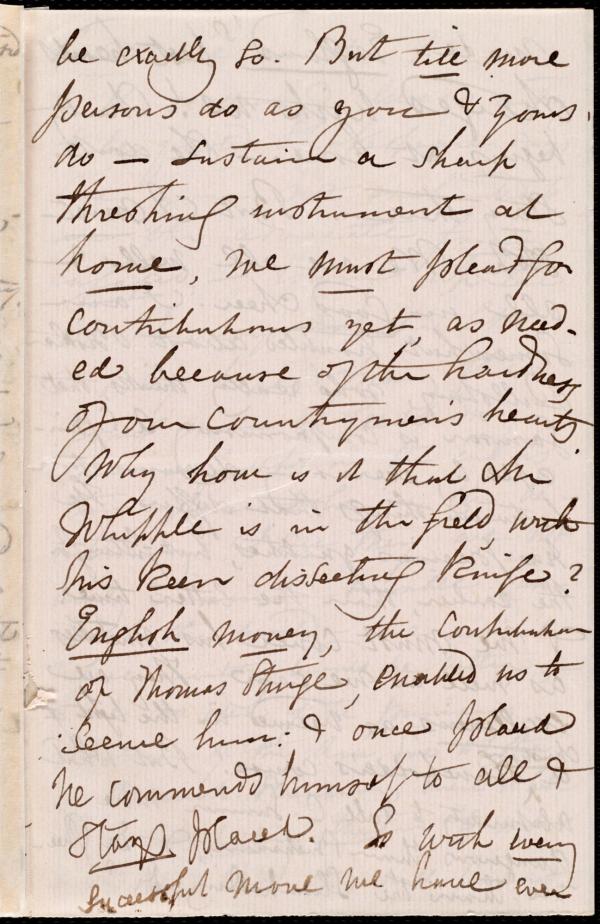 be exactly so. But till more
persons do as you & yours
do — sustain a sharp
threshing instrument at
home, we must plead for
contributions yet, as need-
ed because of the hardness
of our countrymen's hearts
Why how is it that Mr
Whipple is in the field, with
his keen dissecting knife?
English money, the contribution
of Thomas Sturge, enabled us to
secure him: & once placed
he commends himself to all &
stays placed. So with every
successful move we have ever